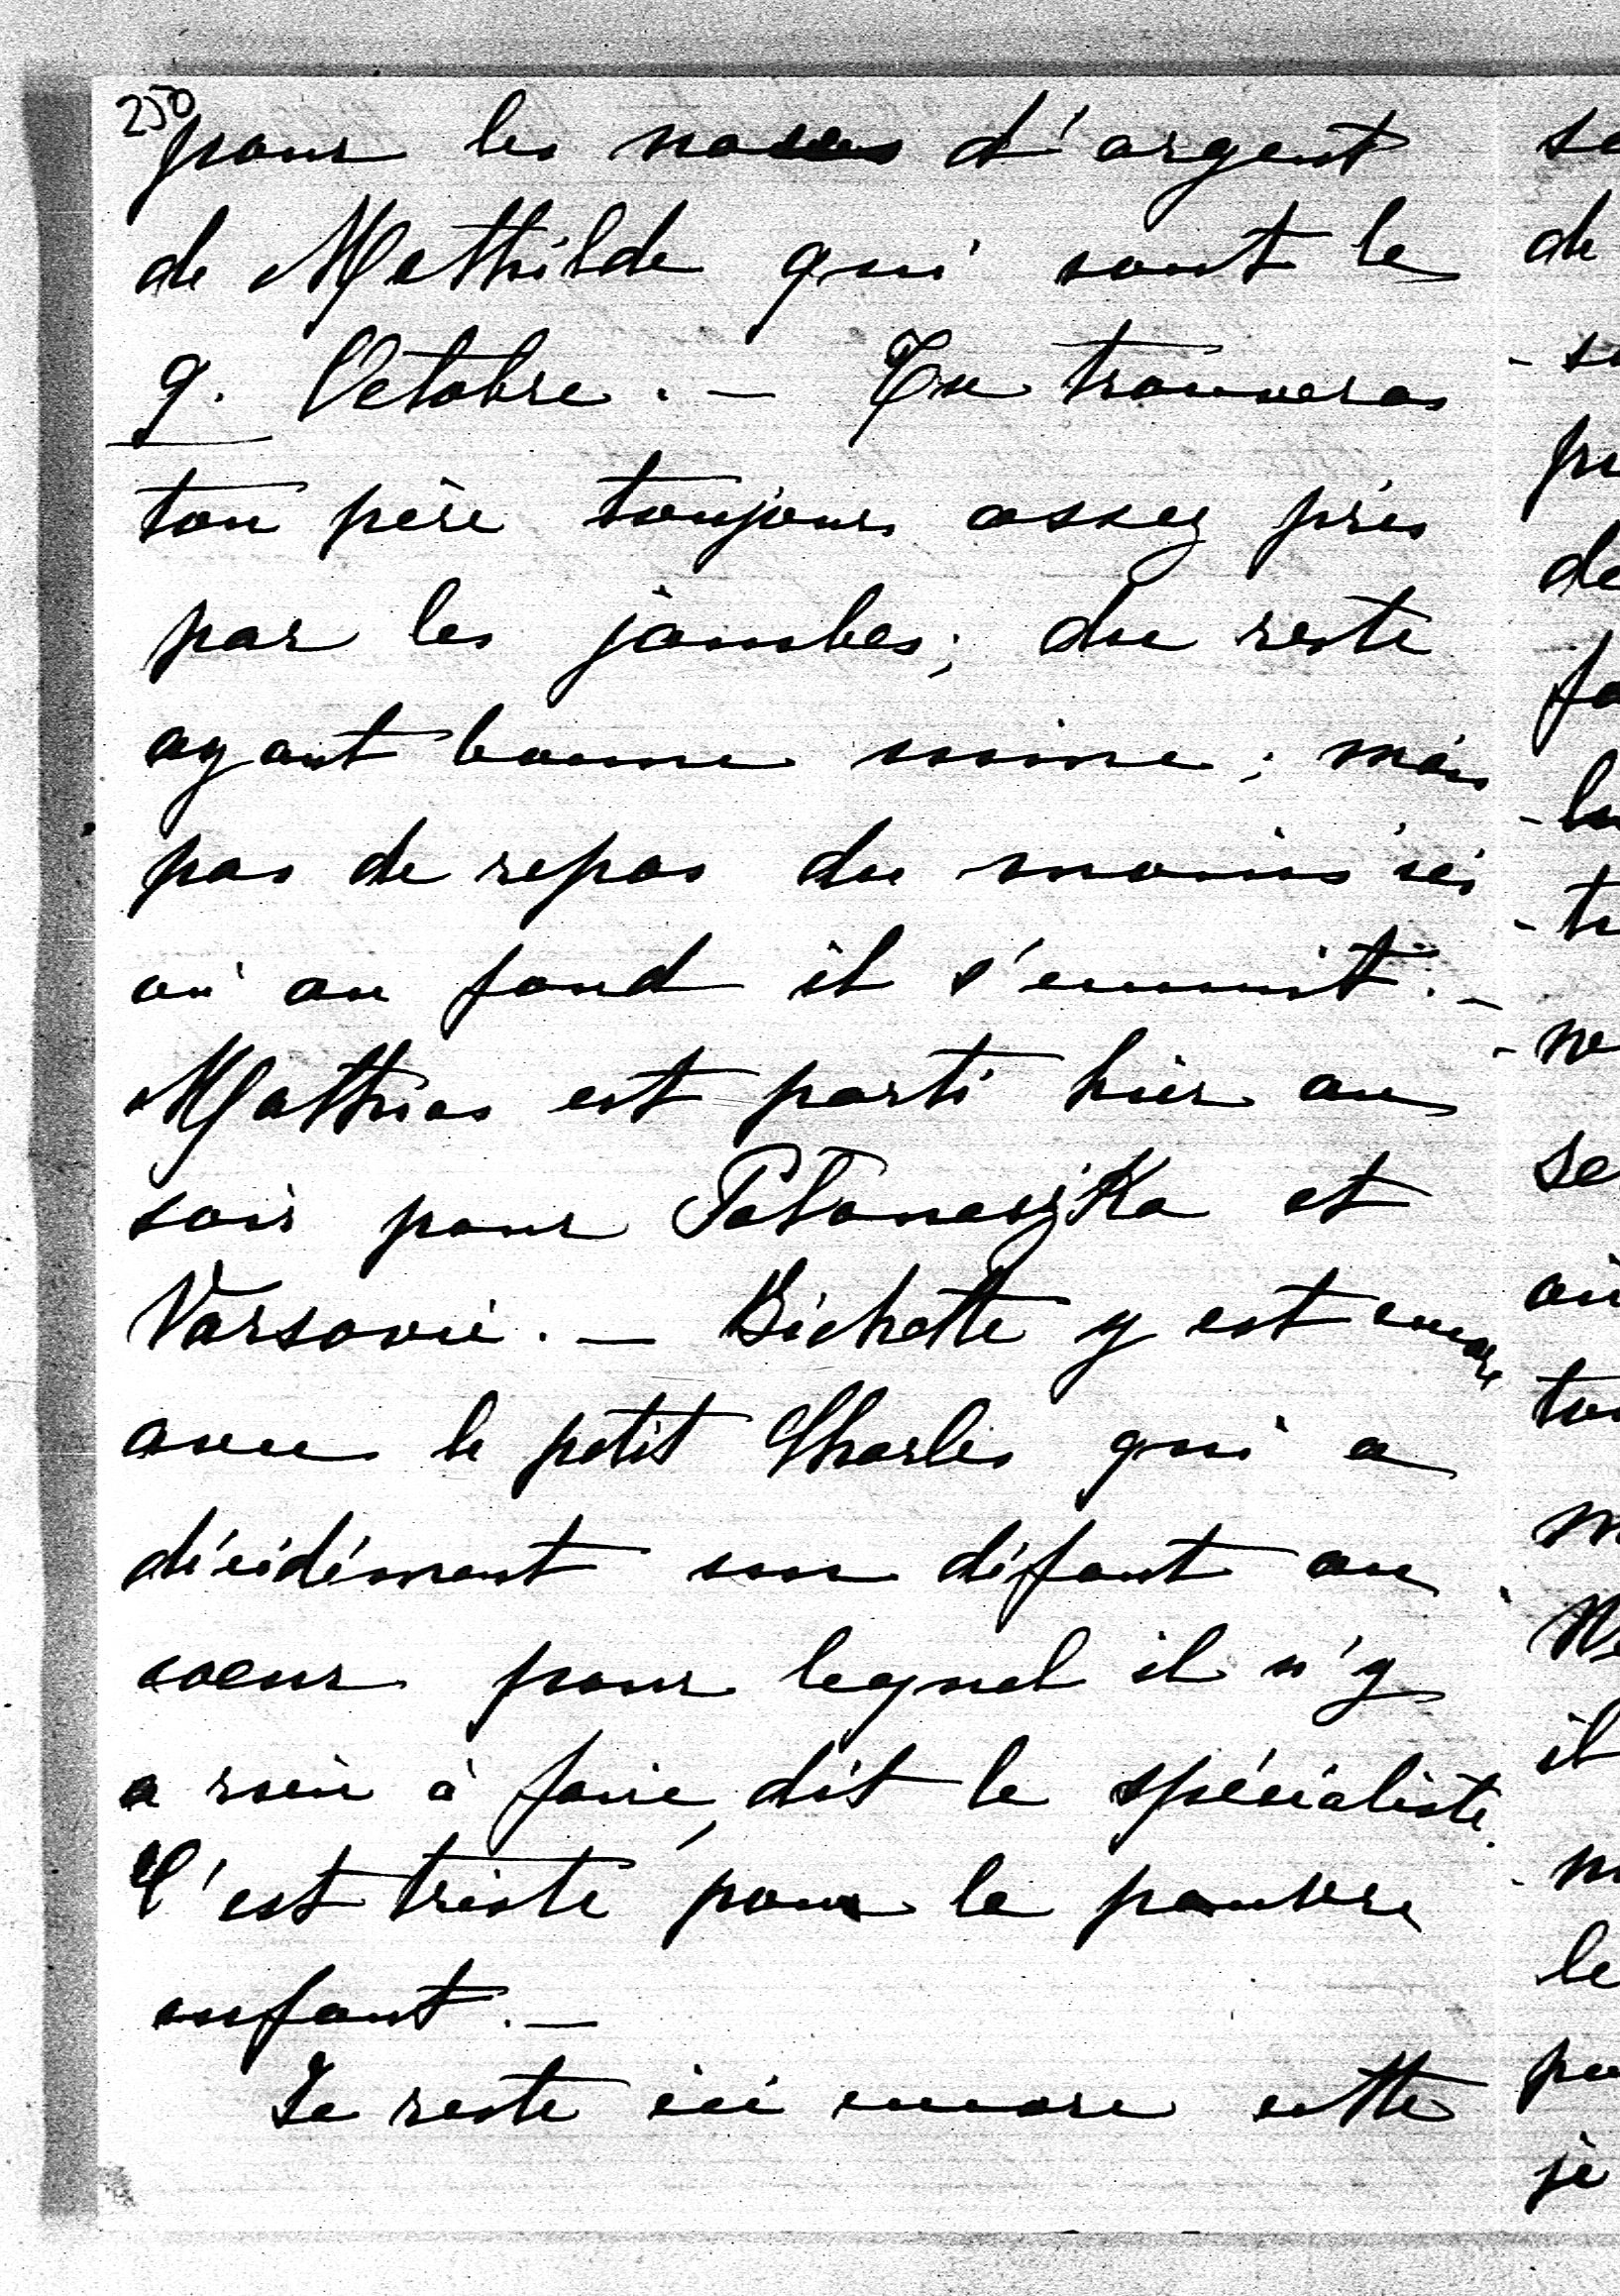 250
pour les noces d'argent
de Mathilde qui sont le
9. Octobre. — Tu trouveras
ton père toujours assez pris
par les jambes; du reste
ayant bonne mine; mais
pas de repos du moins ici
où au fond il s'ennuit. —
Mathias est parti hier au
soir pour et
Varsovie. — Bichette y est encore
avec le petit Charles qui a
décidément son défaut au
coeur pour lequel il n'y
a rien à faire, dit le spécialiste.
C'est triste pour le pauvre
enfant. —
Je reste ici encore cette